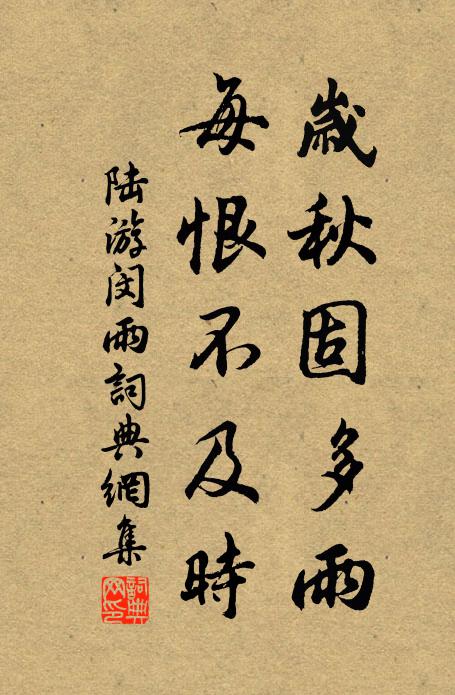 歲秋固多雨
每恨不及時
陆游闵雨詞典網集
詞典网印